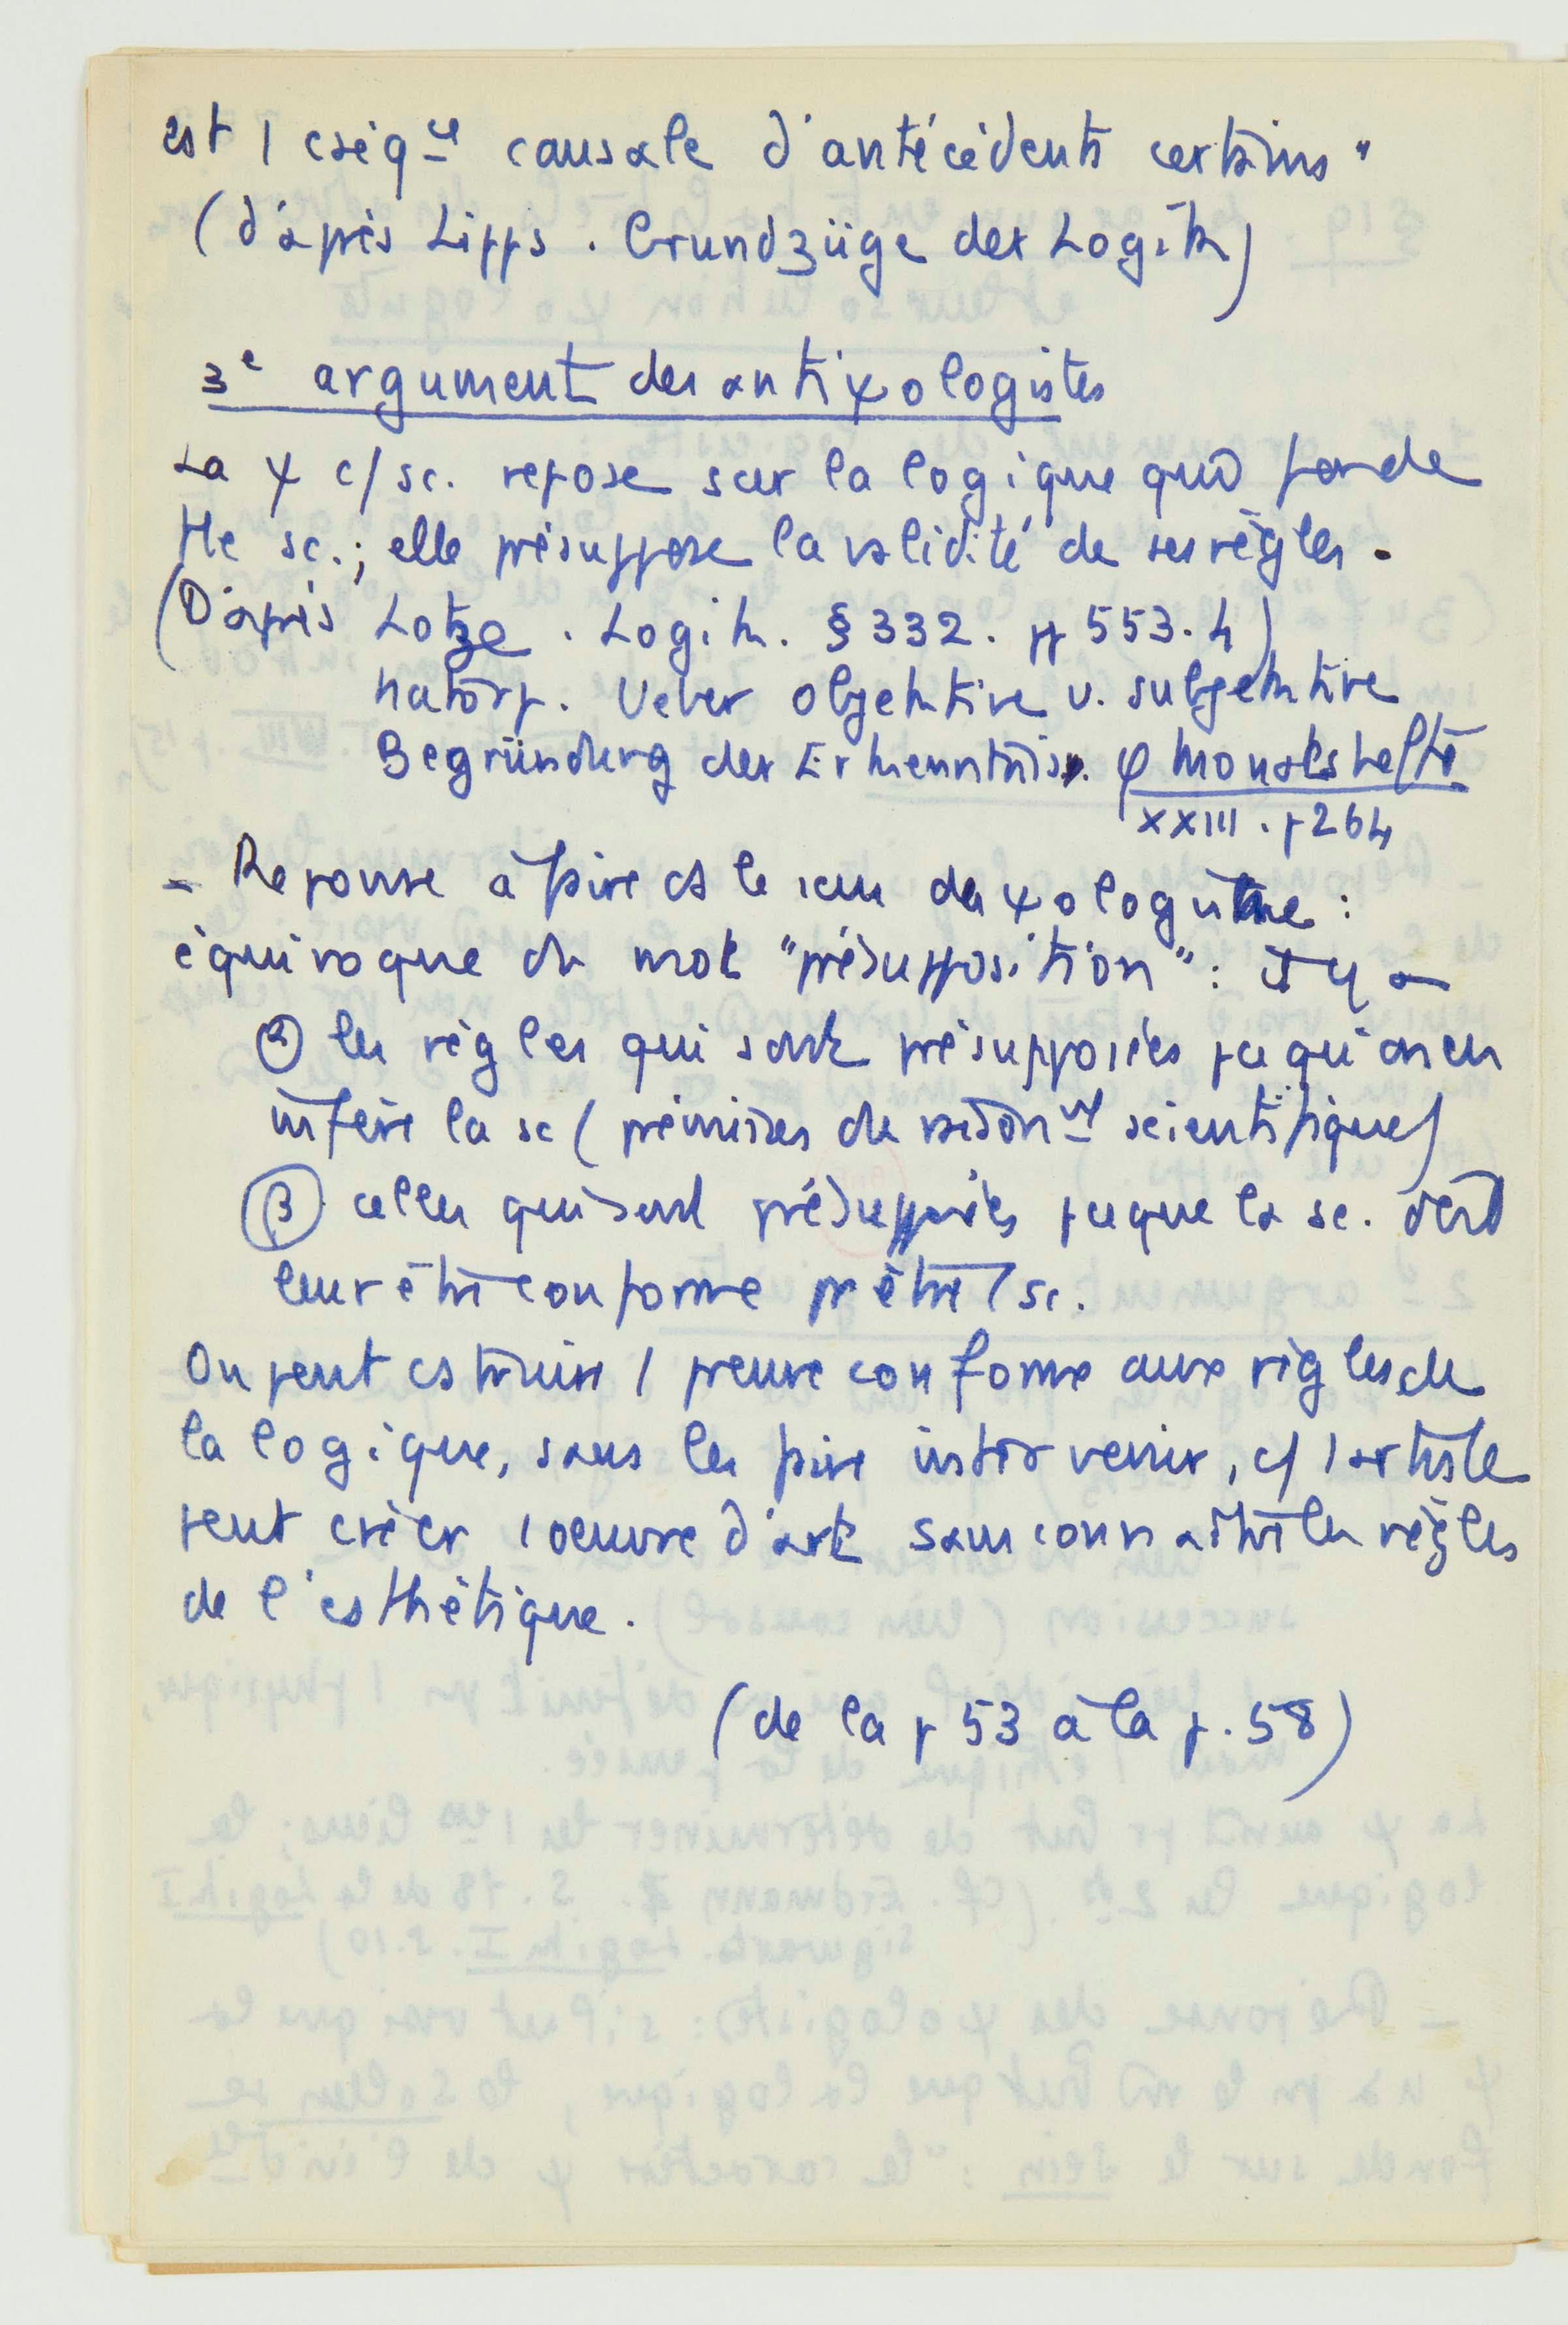 est 1 cséq^ce causale d'antécédents certains"
(d'après Lipps . Grundzüge der Logik)
3e argument des antiψologistes
La ψ c/ sc. repose sur la logique qui fonde
tte sc. ; elle présuppose la validité de ses règles .
(D'après Lotze . Logik . § 332 . pp 553.4)
Natorp . Ueber objektive u. subjektive
Begründung der Erkenntnis. φ Monatshefte
XXIII . p 264
- Réponse à faire ds le sens du ψologisme :
équivoque du mot "présupposition" : il y a
α les règles qui sont présupposées pcequ'on en
infère la sc (prémisses du raisonnt scientifique)
β celles qui sont présupposées pceque la sc. doit
leur être conforme pr être 1 sc.
On peut cstruire 1 preuve conforme aux règles de
la logique, sans les faire intervenir, c/ 1 artiste
peut créer 1 oeuvre d'art sans connaître les règles
de l'esthétique .
(de la p 53 à la p. 58)